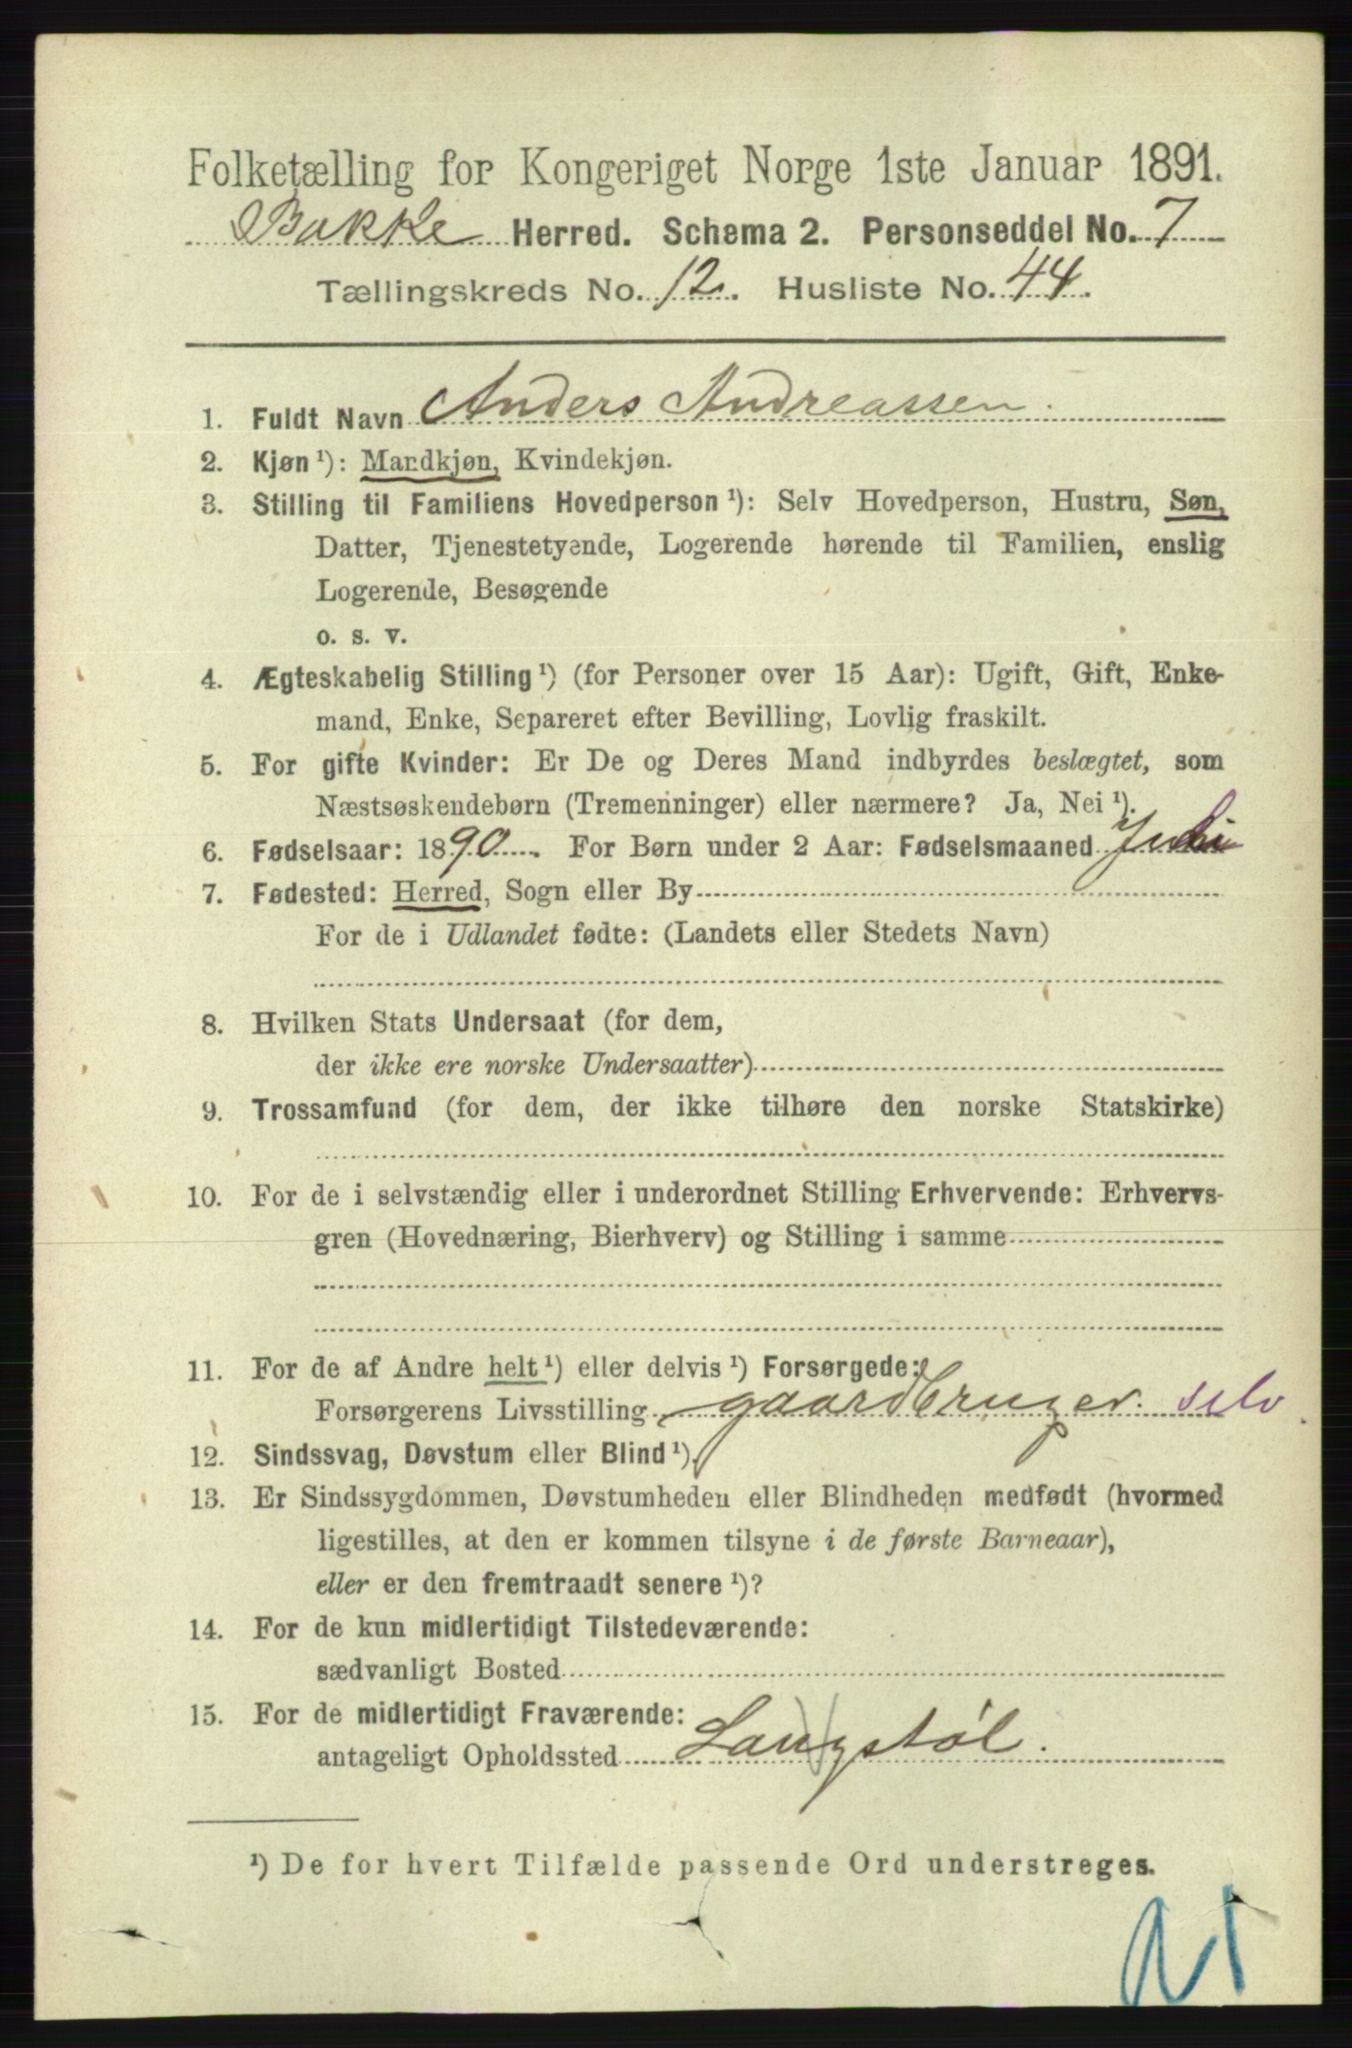 Folketælling for Kongeriget Norge 1ste Januar 1891.
Bakke Herred. Schema 2. Personseddel No. 7
Tællingskreds No. 12. Husliste No. 44.
1. Fuldt Navn Anders Andreassen.
2. Kjøn ¹): Mandkjøn, Kvindekjøn.
3. Stilling til Familiens Hovedperson ¹): Selv Hovedperson, Hustru, Søn,
Datter, Tjenestetyende, Logerende hørende til Familien, enslig
Logerende, Besøgende
o. s. v.
4. Ægteskabelig Stilling ¹) (for Personer over 15 Aar): Ugift, Gift, Enke-
mand, Enke, Separeret efter Bevilling, Lovlig fraskilt.
5. For gifte Kvinder: Er De og Deres Mand indbyrdes beslægtet, som
Næstsøskendebørn (Tremenninger) eller nærmere? Ja, Nei ¹).
6. Fødselsaar: 1890. For Børn under 2 Aar: Fødselsmaaned
7. Fødested: Herred, Sogn eller By
For de i Udlandet fødte: (Landets eller Stedets Navn)
8. Hvilken Stats Undersaat (for dem,
der ikke ere norske Undersaatter)
9. Trossamfund (for dem, der ikke tilhøre den norske Statskirke)
10. For de i selvstændig eller i underordnet Stilling Erhvervende: Erhvervs-
gren (Hovednæring, Bierhverv) og Stilling i samme
11. For de af Andre helt ¹) eller delvis ¹) Forsørgede:
Forsørgerens Livsstilling gaardbruger. selv
12. Sindssvag, Døvstum eller Blind ¹).
13. Er Sindssygdommen, Døvstumheden eller Blindheden medfødt (hvormed
ligestilles, at den er kommen tilsyne i de første Barneaar),
eller er den fremtraadt senere ¹)?
14. For de kun midlertidigt Tilstedeværende:
sædvanligt Bosted
15. For de midlertidigt Fraværende:
antageligt Opholdssted Langstøl.
¹) De for hvert Tilfælde passende Ord understreges.